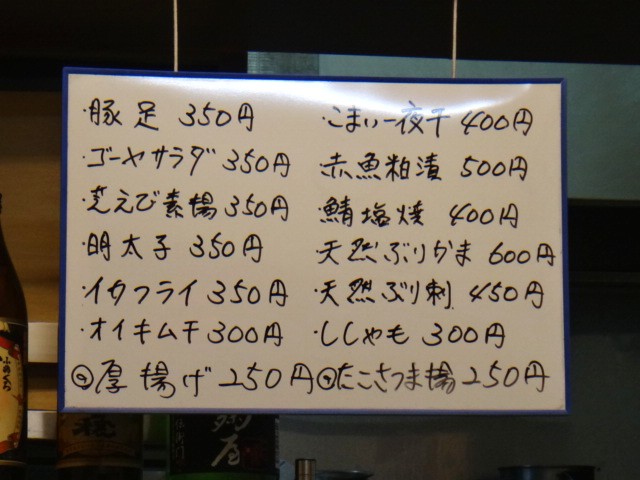 ・豚足 350円
・ゴーヤサラダ 350円
・芝えび素揚 350円
・明太子 350円
・イカフライ 350円
・オイキムチ 300円
厚揚げ 250円
・こまい一夜干 400円
・赤魚粕漬 500円
・鯖塩焼 400円
天然ぶりかま 600円
・天然ぶり刺 450円
・ししゃも 300円
たこさつま揚 250円